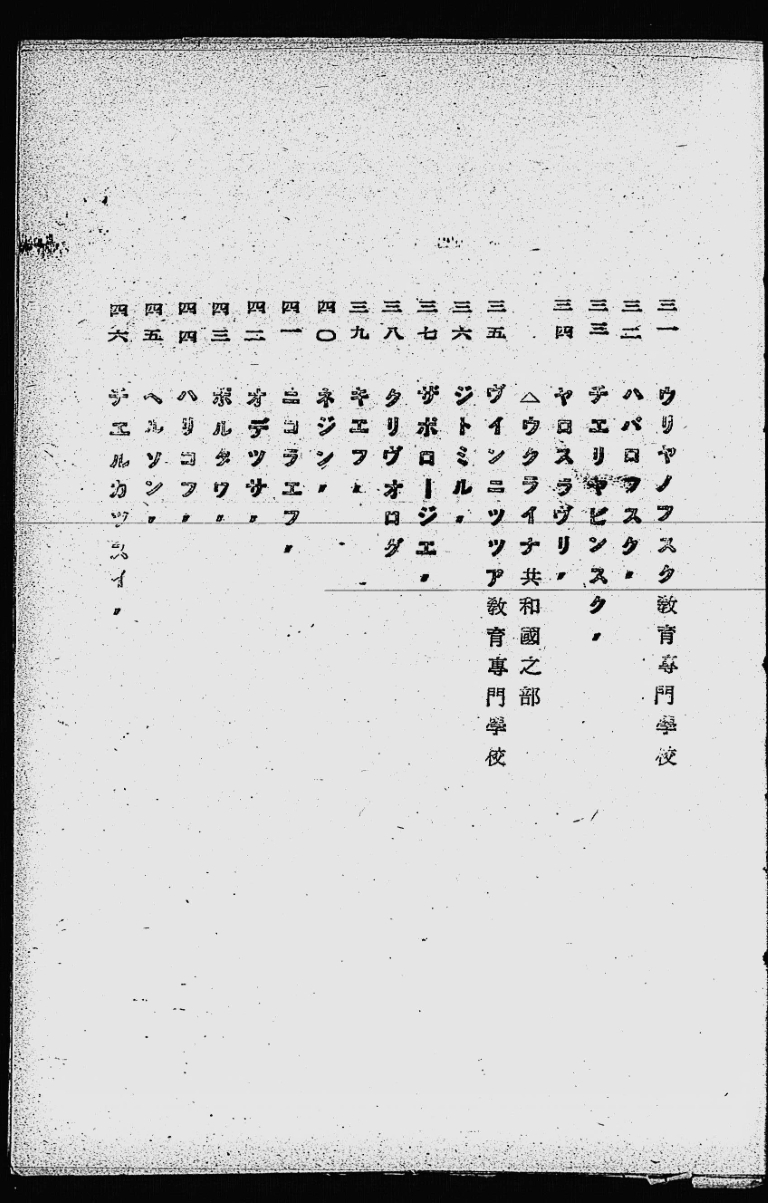 三一 ウリヤノフスク敎育專門學校
三二 ハバロフスク〃
三三 チエリヤビンスク〃
三四 ヤロスラヴリ〃
△ウクライナ共和國之部
三五 ヴインニツツア敎育專門學校
三六 ジトミル〃
三七 ザポロージエ〃
三八 クリヴオログ
三九 キエフ〃
四〇 ネジン〃
四一 ニコラエフ〃
四二 オデツサ〃
四三 ポルタワ〃
四四 ハリコフ〃
四五 ヘルソン〃
四六 チエルカツスイ〃